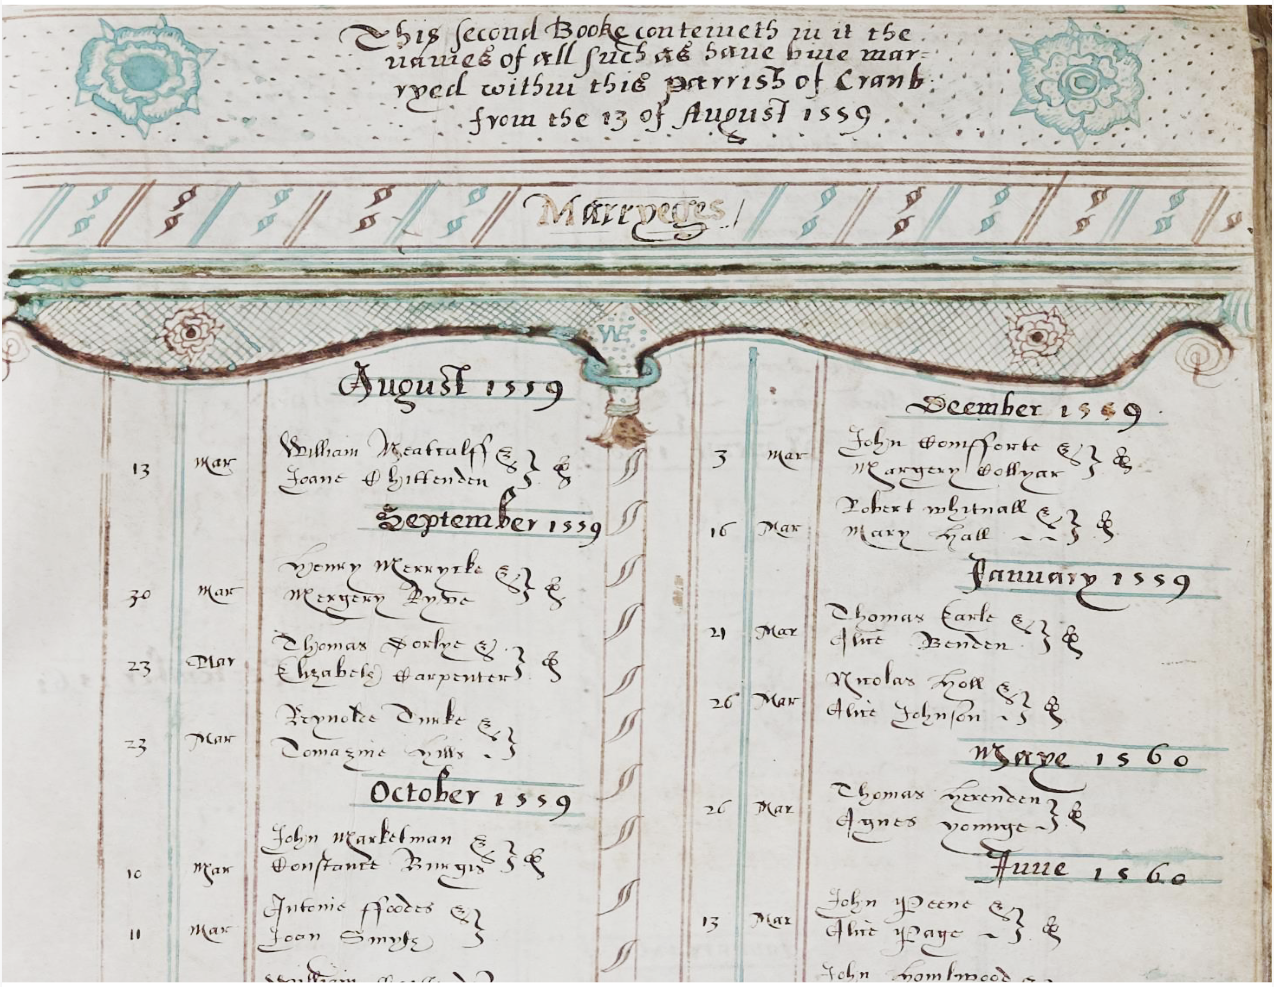 This second Booke conteineth in it the
names of all such as have bine mar-
ryed within this parrish of Cranb:
from the 13 of August 1559.
Marryeges
WE
August 1559
13 Mar William Meatcalff &
Joane Chittenden
September 1559
30 Mar Henry Merrycke &
Mergery Ryve
23 Mar Thomas &
Elizabeth Carpenter
23 Mar Reynolde Turke &
Tomazine Hills
October 1559
10 Mar John Marketman &
Constance Burgis
11 Mar Antonie ffoodes &
Joan Smyth
William
December 1559
3 Mar John Comfforte &
Margery Collyar
16 Mar Robert whitnall &
Mary Hall
January 1559
21 Mar Thomas Earle &
Alice Benden
26 Mar Nicolas Holl &
Alice Johnson
Maye 1560
26 Mar Thomas Herenden
Agnes yonnge
June 1560
13 Mar John Peene &
Alice Page
John